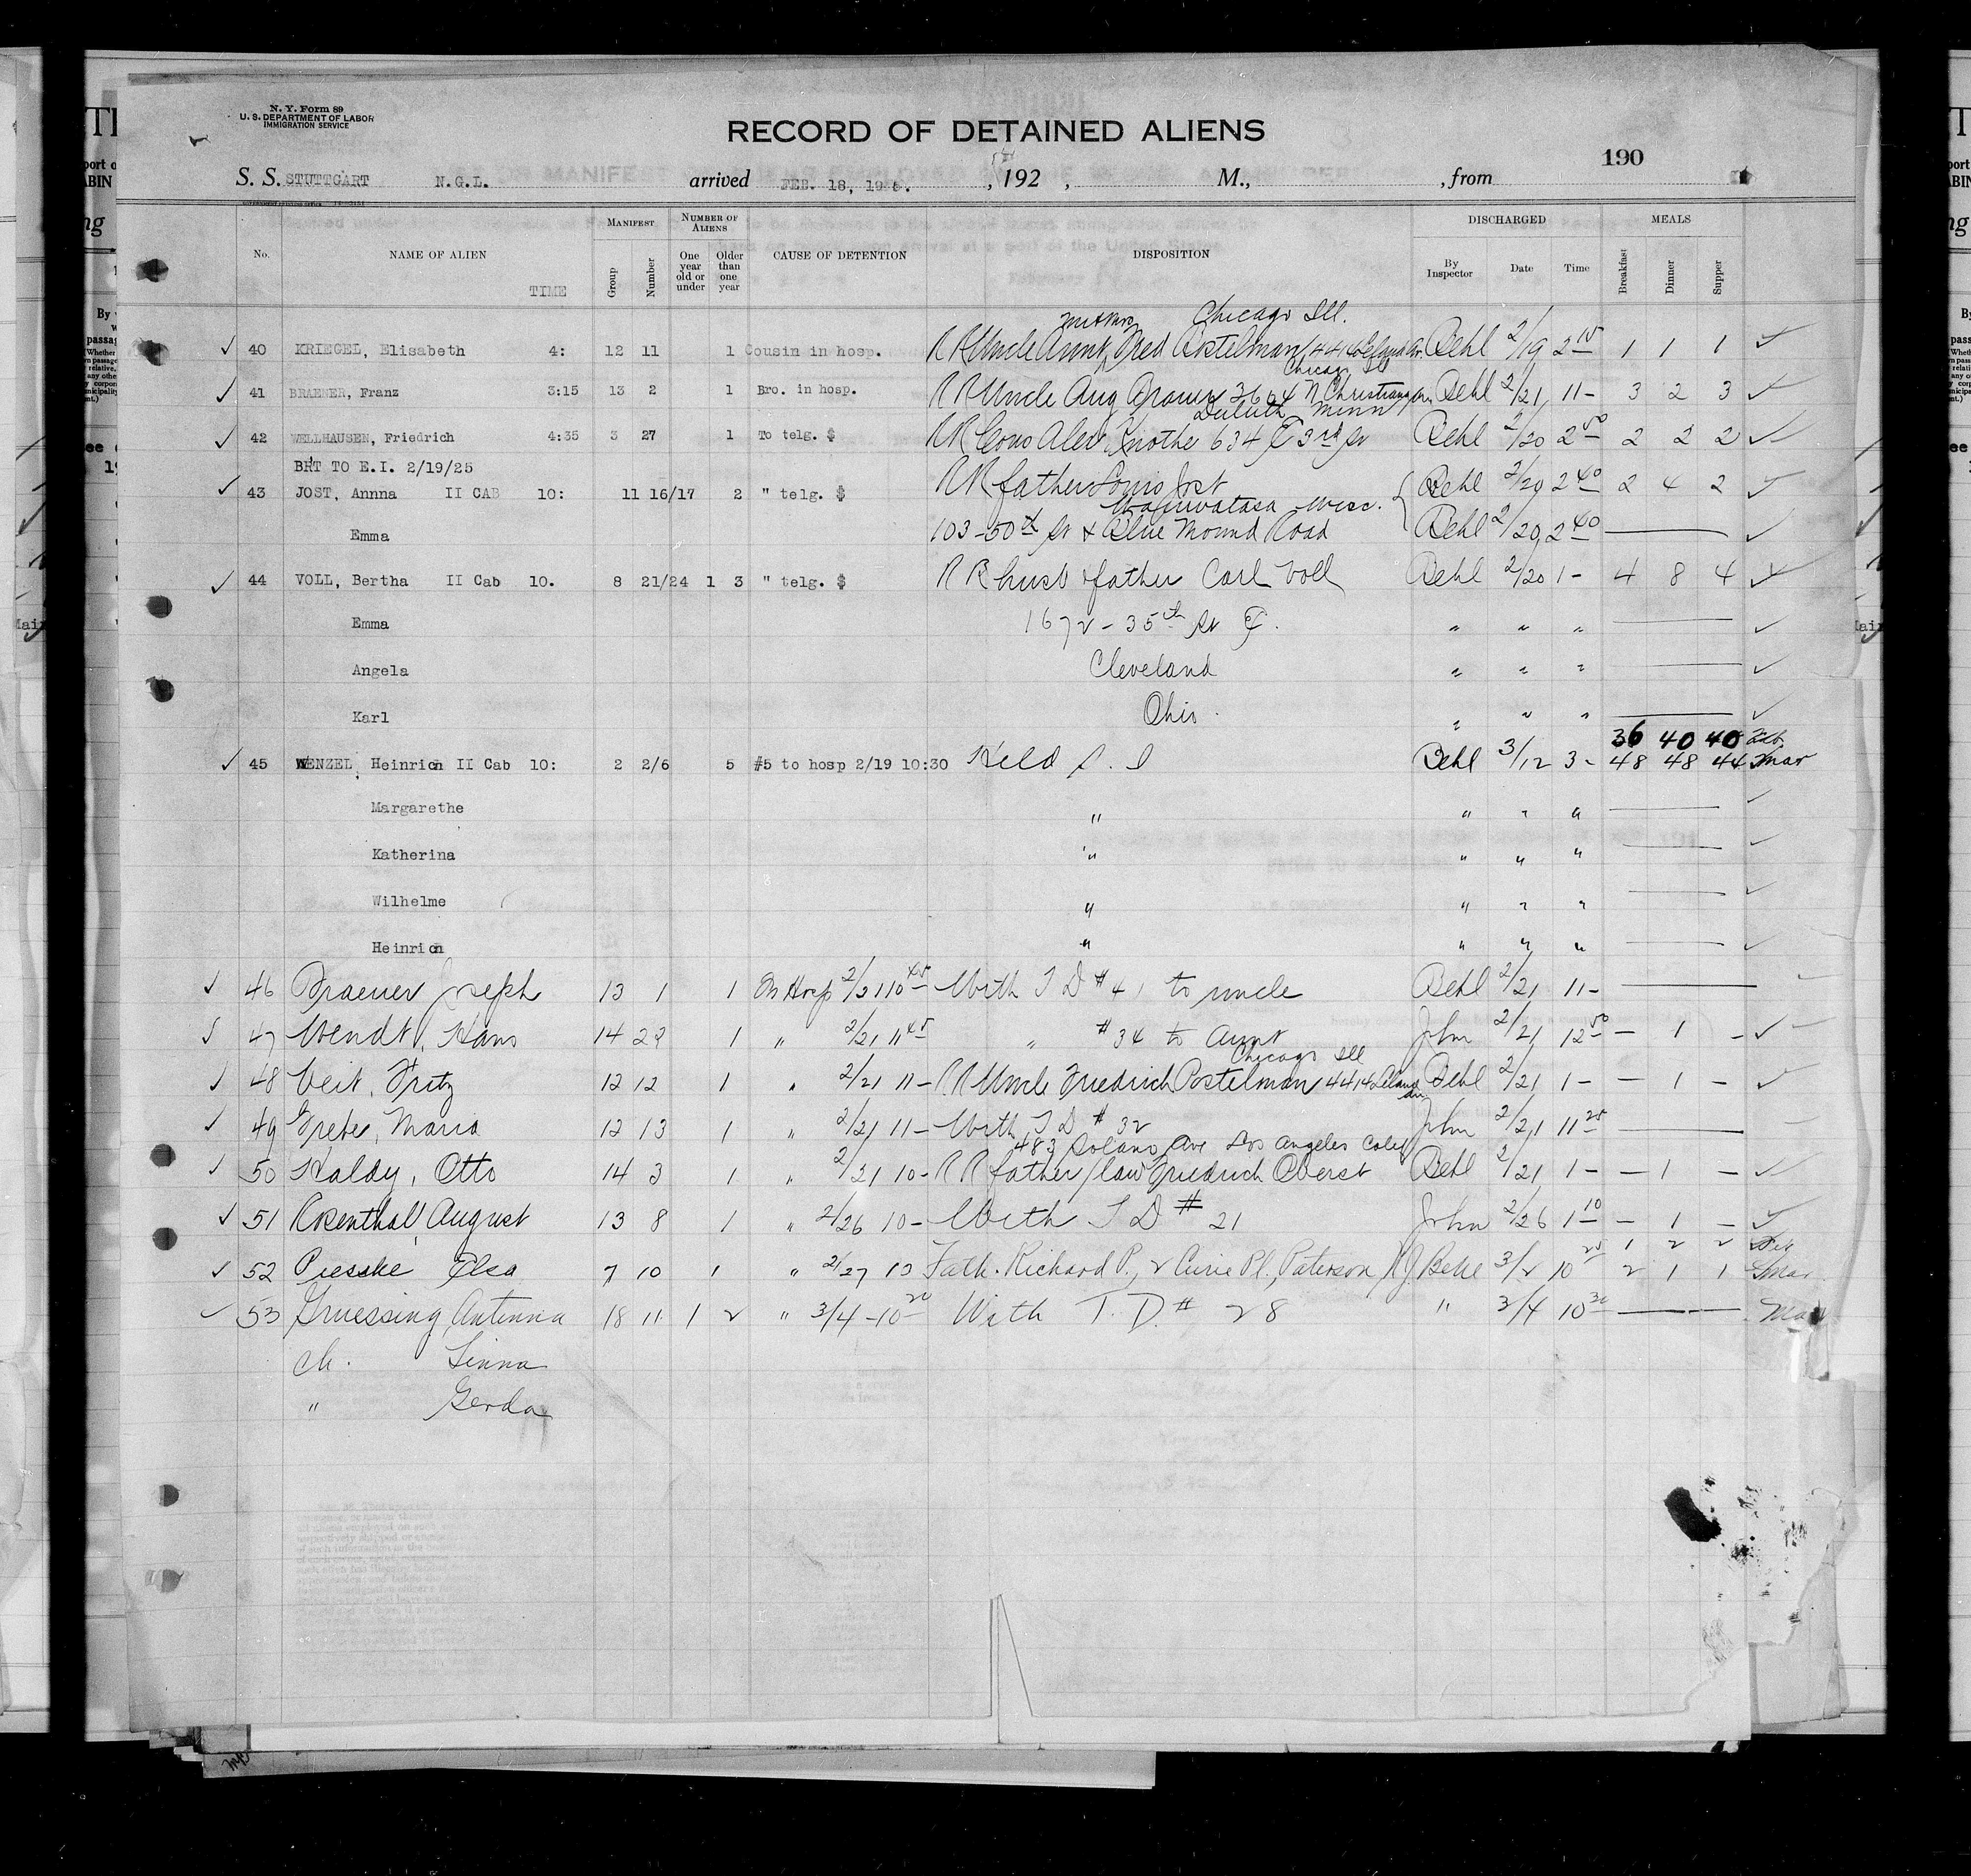 N. Y. Form 89
U. S. DEPARTMENT OF LABOR
IMMIGRATION SERVICE
RECORD OF DETAINED ALIENS
190
S. S. STUTTGART N.G.L. arrived FEB. 18, 1925. , 192 , M., , from
No. NAME OF ALIEN TIME MANIFEST Group Number NUMBER OF ALIENS One year old or under Older than one year CAUSE OF DETENTION DISPOSITION DISCHARGED By Inspector Date Time MEALS Breakfast Dinner Supper
Chicago Ill.
40 KRIEGEL, Elisabeth 4: 12 11 1 Cousin in hosp. RR Uncle Aunt Fred Postelman 4414 Leland Av. Behl 2/19 2 15 1 1 1
Chicago Ill
41 BRAENER, Franz 3:15 13 2 1 Bro. in hosp. RR Uncle Aug Braener 3604 N Christiana Av Behl 2/21 11- 3 2 3
Duluth Minn
42 WELLHAUSEN, Friedrich 4:35 3 27 1 To telg. $ RR Cous Alex Knothe 634 E 3rd St Behl 2/20 2 50 2 2 2
BRT TO E.I. 2/19/25
43 JOST, Annna II CAB 10: 11 16/17 2 " telg. $ RR father Louis Jost Behl 2/20 2 40 2 4 2
Wauwatosa Wisc.
Emma 103-50th St & Blue Mound Road Behl 2/20 2 40
44 VOLL, Bertha II Cab 10. 8 21/24 1 3 " telg. $ RR husb & father Carl Voll Behl 2/20 1- 4 8 4
Emma 1672-35th St E. " " "
Angela Cleveland " " "
Karl Ohio. " " "
36 40 40 Feb.
45 WENZEL, Heinrich II Cab 10: 2 2/6 5 #5 to hosp 2/19 10:30 Held S. I Behl 3/12 3- 48 48 44 Mar
Margarethe " " " "
Katherina " " " "
Wilhelme " " " "
Heinrich " " " "
46 Braener Joseph 13 1 1 In Hosp 2/21 10 45 With T D #41 to uncle Behl 2/21 11-
47 Wendt, Hans 14 29 1 " 2/21 11 45 " #34 to Aunt John 2/21 12 50 - 1 -
Chicago Ill
48 Veit, Fritz 12 12 1 " 2/21 11- RR Uncle Friedrich Postelman 4414 Leland Av Behl 2/21 1- - 1 -
49 Grebe, Maria 12 13 1 " 2/21 11- With T D #32 John 2/21 11 25
483 Solano Ave Los Angeles Calif
50 Haldy, Otto 14 3 1 " 2/21 10- RR father/law Friedrich Oberst Behl 2/21 1- - 1 -
51 Rosenthal, August 13 8 1 " 2/26 10- With T D # 21 John 2/26 1 10 - 1 -
52 Pieske Elsa 7 10 1 " 2/27 10 Fath. Richard P., 2 Curie Pl., Paterson, N J Behl 3/2 10 25 1 2 2 Feb
2 1 1 Mar
53 Gruessing Antenna 18 11 1 2 " 3/4 -10 20 With T. D. # 28 " 3/4 10 30 Mar
ch. Linna
" Gerda